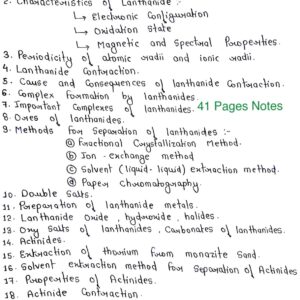 2. Characteristics of Lanthanide :-
↳ Electronic Configuration
↳ Oxidation State
↳ Magnetic and Spectral Properties.
3. Periodicity of atomic radii and ionic radii.
4. Lanthanide Contraction.
5. Cause and Consequences of lanthanide Contraction.
6. Complex formation by lanthanides.
7. Important Complexes of lanthanides. 41 Pages Notes
8. Ores of lanthanides.
9. Methods For Separation of lanthanides :-
ⓐ Fractional Crystallization Method.
ⓑ Ion - exchange method
ⓒ Solvent (liquid - liquid) extraction method.
ⓓ Paper Chromatography.
10. Double Salts.
11. Preparation of lanthanide metals.
12. Lanthanide Oxide, hydroxide, halides.
13. Oxy Salts of lanthanides, Carbonates of lanthanides.
14. Actinides.
15. Extraction of thorium from monazite Sand.
16. Solvent extraction method for Separation of Actinides
17. Properties of Actinides.
18. Actinide Contraction.